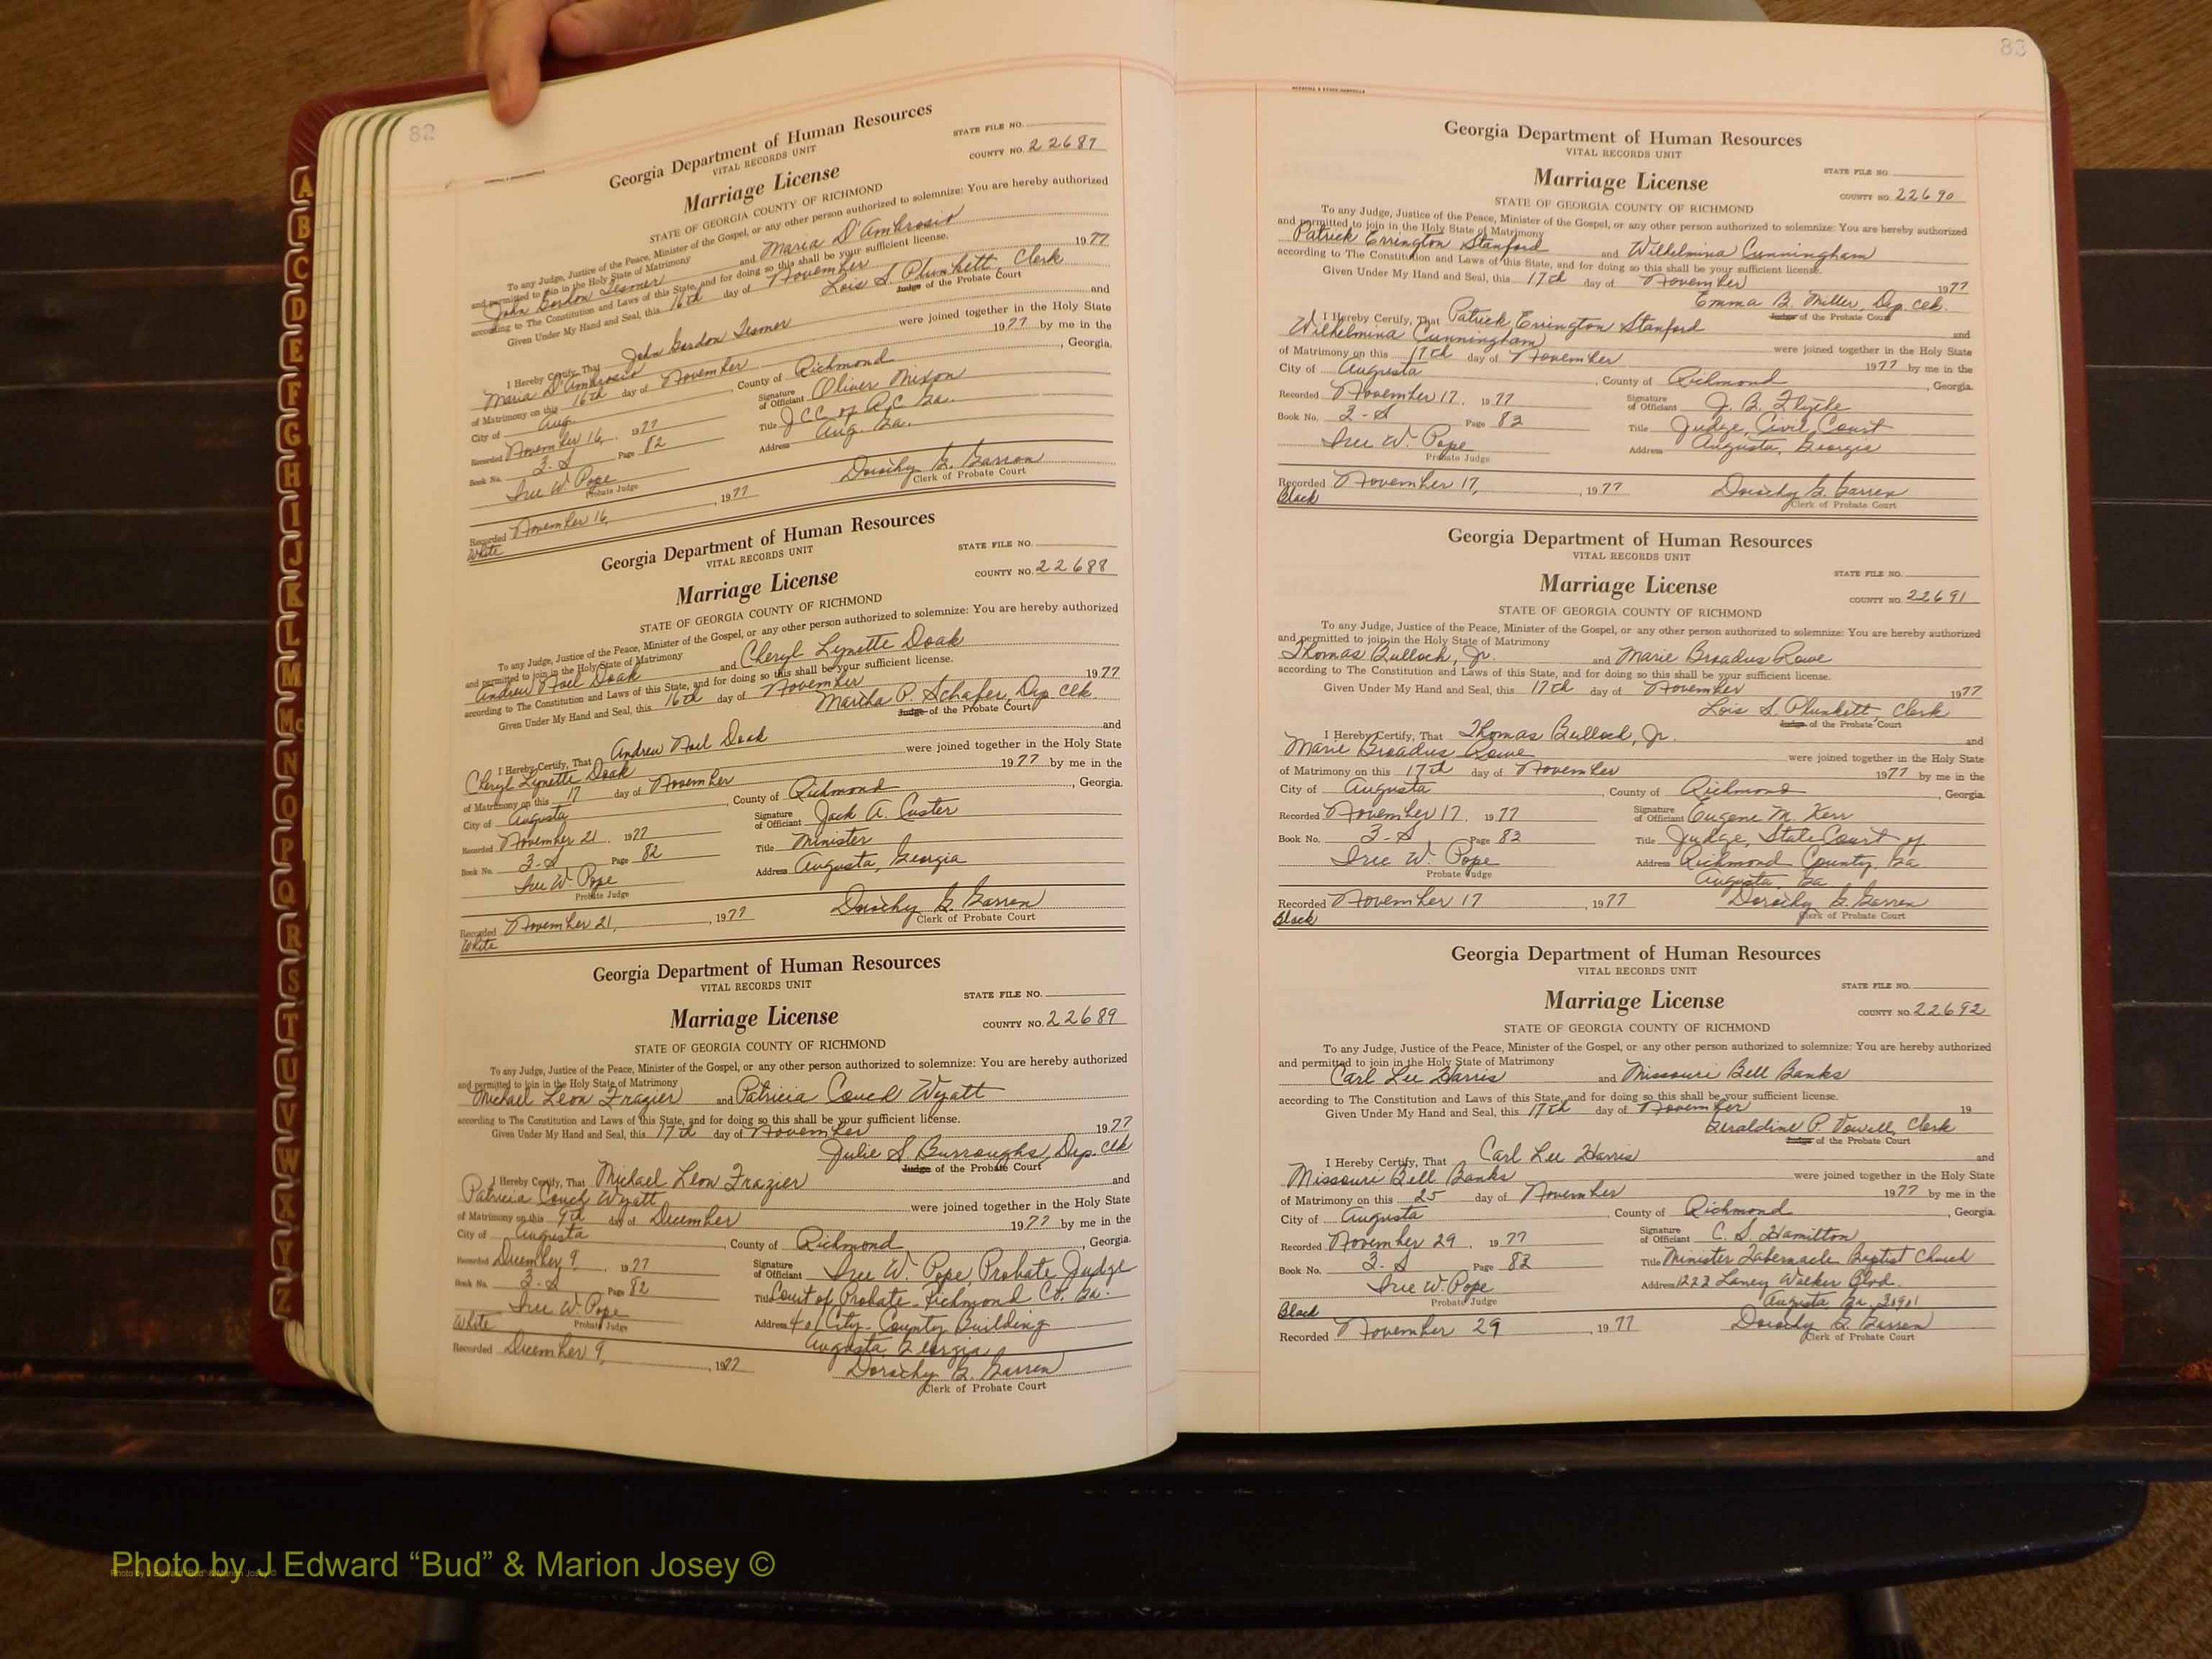 82
Georgia Department of Human Resources
VITAL RECORDS UNIT
STATE FILE NO.
Marriage License
COUNTY NO. 22687
STATE OF GEORGIA COUNTY OF RICHMOND
To any Judge, Justice of the Peace, Minister of the Gospel, or any other person authorized to solemnize: You are hereby authorized
and permitted to join in the Holy State of Matrimony
John Gordon and Maria D'Ambrosio
according to The Constitution and Laws of this State, and for doing so this shall be your sufficient license.
Given Under My Hand and Seal, this 16th day of November 1977
Lois S. Plunkett, Clerk
Judge of the Probate Court
I Hereby Certify, That John Gordon and
Maria D'Ambrosio were joined together in the Holy State
of Matrimony on this 16th day of November 1977 by me in the
City of Aug. , County of Richmond , Georgia.
Recorded November 16, 1977 Signature of Officiant Oliver Mixon
Book No. 3-S Page 82 Title JCC of R.C. Ga.
Address Aug. Ga.
W. Pope
Probate Judge
Dorothy G. Garren
Clerk of Probate Court
Recorded November 16, , 1977
White
Georgia Department of Human Resources
VITAL RECORDS UNIT
STATE FILE NO.
Marriage License
COUNTY NO. 22688
STATE OF GEORGIA COUNTY OF RICHMOND
To any Judge, Justice of the Peace, Minister of the Gospel, or any other person authorized to solemnize: You are hereby authorized
and permitted to join in the Holy State of Matrimony
Andrew Noel Doak and Cheryl Lynette Doak
according to The Constitution and Laws of this State, and for doing so this shall be your sufficient license.
Given Under My Hand and Seal, this 16th day of November 1977
Martha P. Schafer, Dep. Clk.
Judge of the Probate Court
I Hereby Certify, That Andrew Noel Doak and
Cheryl Lynette Doak were joined together in the Holy State
of Matrimony on this 17 day of November 1977 by me in the
City of Augusta , County of Richmond , Georgia.
Recorded November 21 . 1977 Signature of Officiant Jack A. Custer
Book No. 3-S Page 82 Title Minister
Address Augusta, Georgia
W. Pope
Probate Judge
Dorothy G. Garren
Clerk of Probate Court
Recorded November 21, , 1977
White
Georgia Department of Human Resources
VITAL RECORDS UNIT
STATE FILE NO.
Marriage License
COUNTY NO. 22689
STATE OF GEORGIA COUNTY OF RICHMOND
To any Judge, Justice of the Peace, Minister of the Gospel, or any other person authorized to solemnize: You are hereby authorized
and permitted to join in the Holy State of Matrimony
Michael Leon Frazier and Patricia Couch Wyatt
according to The Constitution and Laws of this State, and for doing so this shall be your sufficient license.
Given Under My Hand and Seal, this 17th day of November 1977
Julie S. Burroughs, Dep. Clk
Judge of the Probate Court
I Hereby Certify, That Michael Leon Frazier and
Patricia Couch Wyatt were joined together in the Holy State
of Matrimony on this 9th day of December 1977 by me in the
City of Augusta , County of Richmond , Georgia.
Recorded December 9 , 1977 Signature of Officiant W. Pope, Probate Judge
Book No. 3-S Page 82 Title Court of Probate - Richmond Co. Ga.
W. Pope
White Probate Judge Address 401 City-County Building
Augusta, Georgia
Recorded December 9, , 1977 Dorothy G. Garren
Clerk of Probate Court
83
Georgia Department of Human Resources
VITAL RECORDS UNIT
STATE FILE NO.
Marriage License
COUNTY NO. 22690
STATE OF GEORGIA COUNTY OF RICHMOND
To any Judge, Justice of the Peace, Minister of the Gospel, or any other person authorized to solemnize: You are hereby authorized
and permitted to join in the Holy State of Matrimony
Patrick Errington Stanford and Wilhelmina Cunningham
according to The Constitution and Laws of this State, and for doing so this shall be your sufficient license.
Given Under My Hand and Seal, this 17th day of November 1977
Emma B. Miller, Dep. Clk.
Judge of the Probate Court
I Hereby Certify, That Patrick Errington Stanford and
Wilhelmina Cunningham were joined together in the Holy State
of Matrimony on this 17th day of November 1977 by me in the
City of Augusta , County of Richmond , Georgia.
Recorded November 17, 1977 Signature of Officiant J. B. Flythe
Book No. 3-S Page 83 Title Judge, Civil Court
W. Pope Address Augusta, Georgia
Probate Judge
Recorded November 17, , 1977 Dorothy G. Garren
Black Clerk of Probate Court
Georgia Department of Human Resources
VITAL RECORDS UNIT
STATE FILE NO.
Marriage License
COUNTY NO. 22691
STATE OF GEORGIA COUNTY OF RICHMOND
To any Judge, Justice of the Peace, Minister of the Gospel, or any other person authorized to solemnize: You are hereby authorized
and permitted to join in the Holy State of Matrimony
Thomas Bullock, Jr. and Marie Broadus Rowe
according to The Constitution and Laws of this State, and for doing so this shall be your sufficient license.
Given Under My Hand and Seal, this 17th day of November 1977
Lois S. Plunkett, Clerk
Judge of the Probate Court
I Hereby Certify, That Thomas Bullock, Jr. and
Marie Broadus Rowe were joined together in the Holy State
of Matrimony on this 17th day of November 1977 by me in the
City of Augusta , County of Richmond , Georgia.
Recorded November 17, 1977 Signature of Officiant Eugene M. Kerr
Book No. 3-S Page 83 Title Judge, State Court of
W. Pope Address Richmond County, Ga
Probate Judge Augusta, Ga
Recorded November 17 , 1977 Dorothy G. Garren
Black Clerk of Probate Court
Georgia Department of Human Resources
VITAL RECORDS UNIT
STATE FILE NO.
Marriage License
COUNTY NO. 22692
STATE OF GEORGIA COUNTY OF RICHMOND
To any Judge, Justice of the Peace, Minister of the Gospel, or any other person authorized to solemnize: You are hereby authorized
and permitted to join in the Holy State of Matrimony
Carl Lee Harris and Missouri Bell Banks
according to The Constitution and Laws of this State, and for doing so this shall be your sufficient license.
Given Under My Hand and Seal, this 17th day of November 19
Geraldine P. Vowell, Clerk
Judge of the Probate Court
I Hereby Certify, That Carl Lee Harris and
Missouri Bell Banks were joined together in the Holy State
of Matrimony on this 25 day of November 1977 by me in the
City of Augusta , County of Richmond , Georgia.
Recorded November 29, 1977 Signature of Officiant C. S. Hamilton
Book No. 3-S Page 83 Title Minister Tabernacle Baptist Church
W. Pope Address 1223 Laney Walker Blvd.
Probate Judge Augusta, Ga. 30901
Black
Recorded November 29 , 1977 Dorothy G. Garren
Clerk of Probate Court
A
B
C
D
E
F
G
H
I
J
K
L
M
Mc
N
O
P
Q
R
S
T
U
V
W
X
Y
Z
Photo by J Edward “Bud” & Marion Josey ©
Photo by J Edward "Bud" & Marion Josey ©